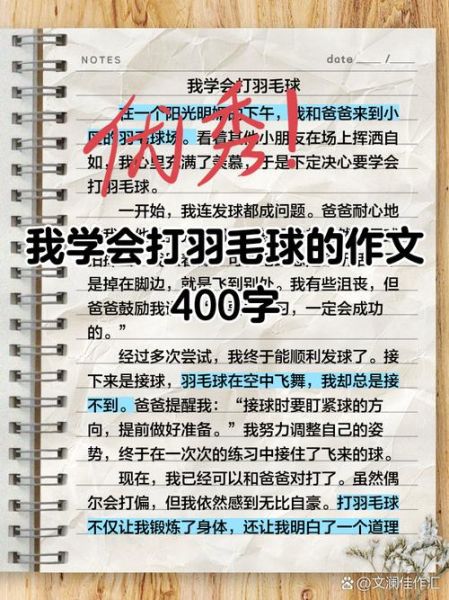 NOTES
date /
我学会打羽毛球
在一个阳光明媚的下午，我和爸爸来到小
区的羽毛球场。看着其他小朋友在场上挥洒自
如，我心里充满了羡慕，于是下定决心要学会
打羽毛球。
优秀！
一开始，我连发球都成问题。爸爸耐心地
我学会打羽毛球的作文
400字
是掉在脚边，就是飞到别处。我有些沮丧，但
爸爸鼓励我 习，一定会成功
的。”
经过多次尝试，我终于能顺利发球了。接
下来是接球，羽毛球在空中飞舞，我却总是接
不到。爸爸提醒我：“接球时要盯紧球的方
向，提前做好准备。”我努力调整自己的姿
势，终于在一次次的练习中接住了飞来的球。
现在，我已经可以和爸爸对打了。虽然偶
尔会打偏，但我依然感到无比自豪。打羽毛球
不仅让我锻炼了身体，还让我明白了一个道理
@文澜佳作汇